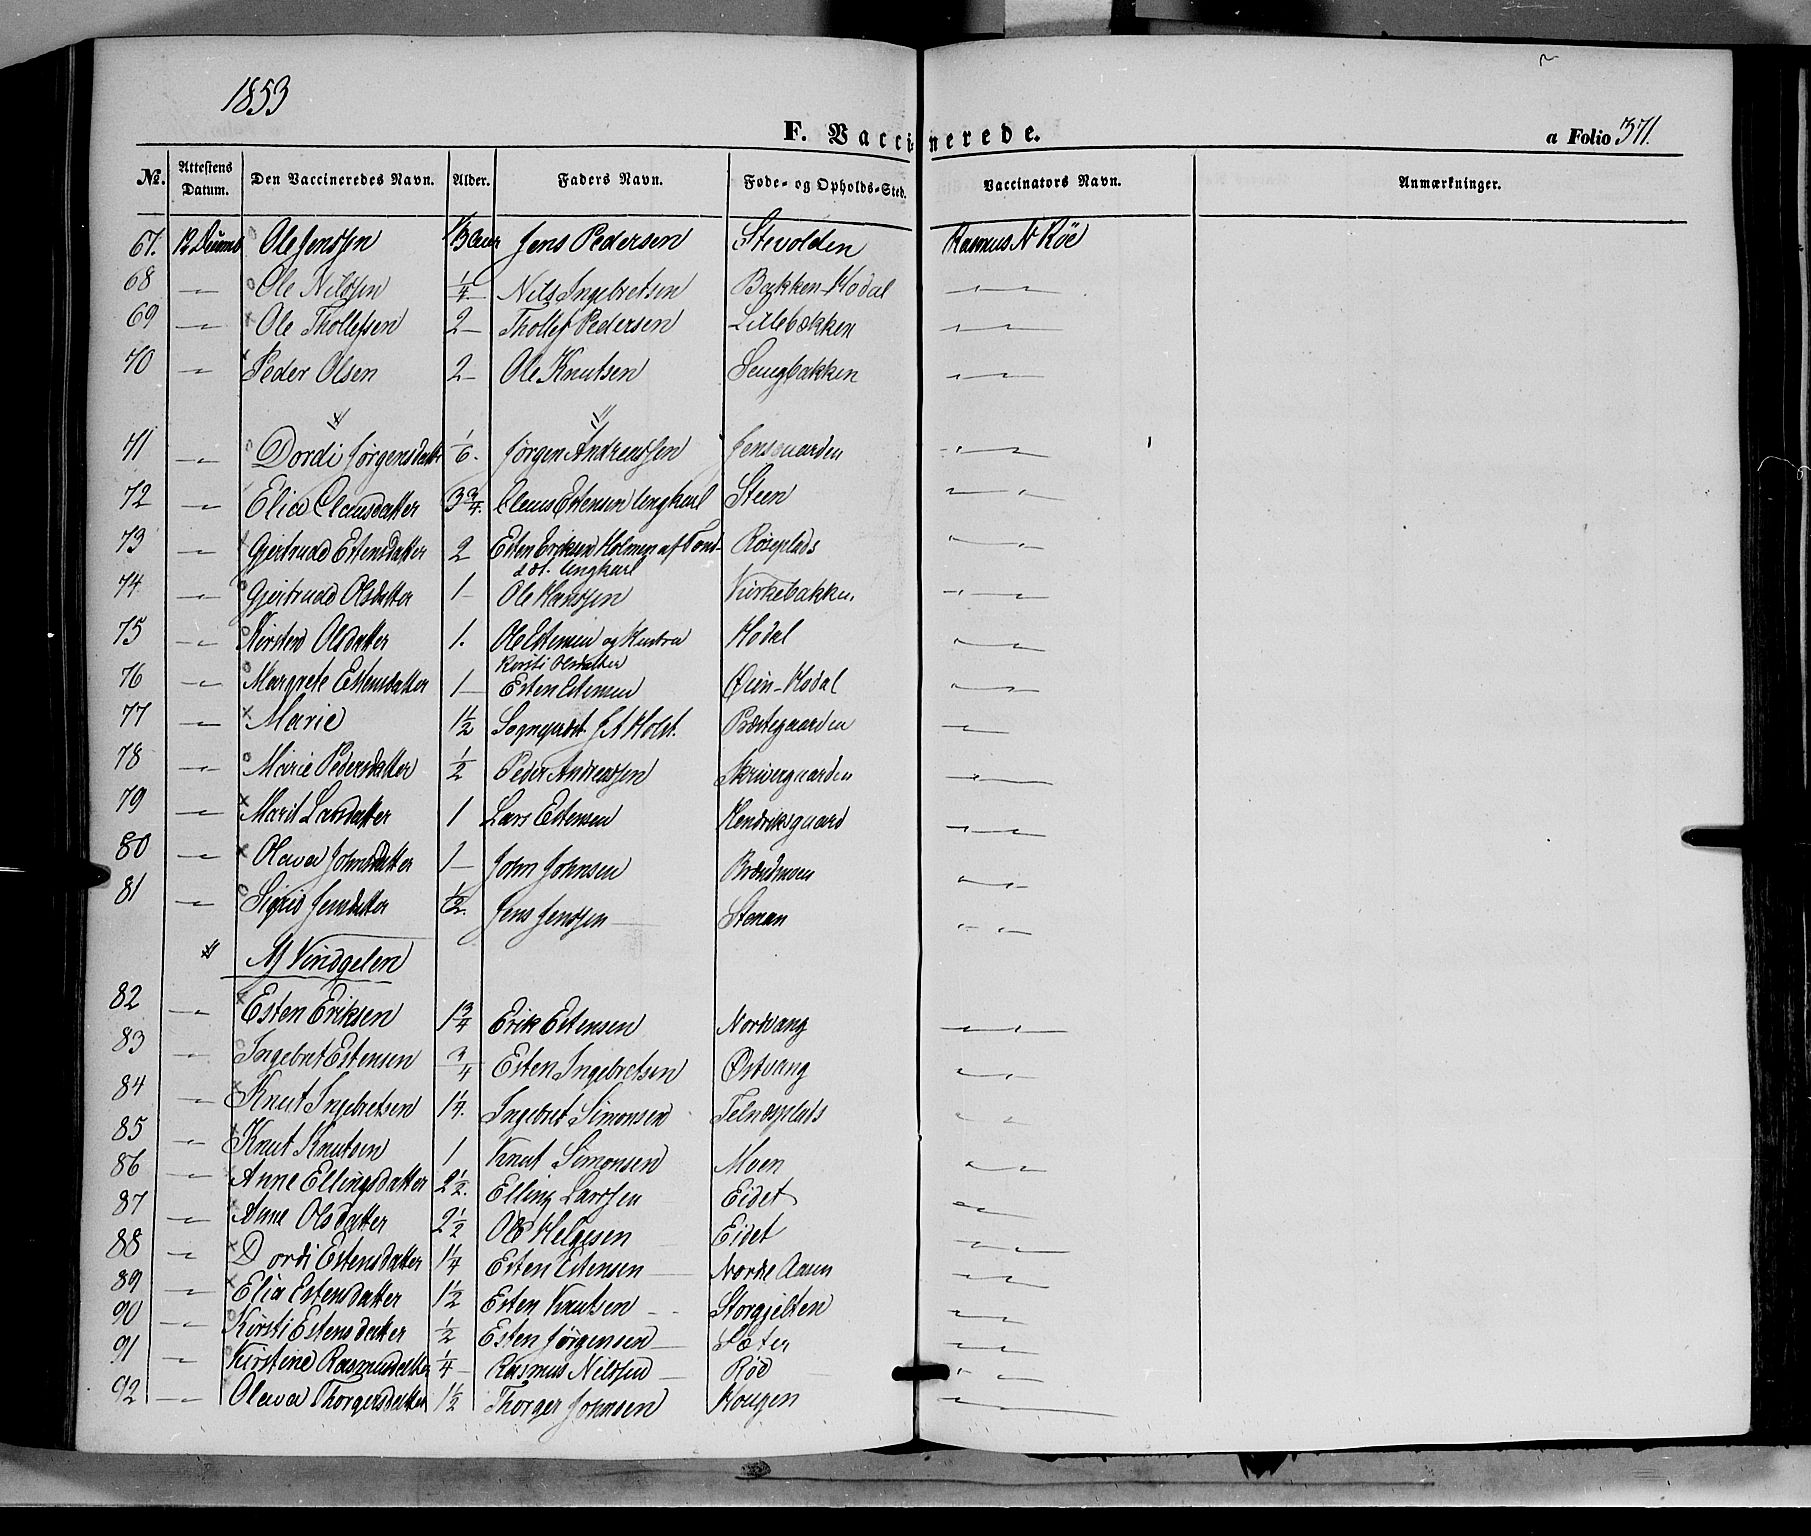 1853
F. Vaccinerede.
a Folio 371.
No. Attestens Datum. Den Vaccineredes Navn. Alder. Faders Navn. Føde- og Opholds-Sted. Vaccinators Navn. Anmærkninger.
67. Ole Jenssen Jens Pedersen Stevolden Rasmus N Röe
68 — Ole Nilssen 1/4 Nils Ingebretsen Bakken-Hodal — —
69 — Ole Thollefsen 2 — Thollef Pedersen Lillebækken — —
70 — Peder Olsen 2 — Ole Knutsen — —
71 — Dordi Jørgensdatter 1/6. Jørgen Andreassen Jensgaarden — —
72 — Elia Clausdatter 3 3/4. Claus Estensen Ungkarl Steen — —
73 — Gjertrud Estensdatter 2 Esten Eriksen Holmen af Tønd- Røseplads — —
set. Ungkarl
74 — Gjertrud Olsdatter 1 — Ole Hanssen Kirkebakken — —
75 — Kirsten Olsdatter 1. Ole Estensen og Hustru Hodal — —
Kirsti Olsdatter
76 — Margrete Estensdatter 1 — Esten Estensen Øien-Hodal — —
77 — Marie 1 1/2 Sognepræst J A Holst. Præstegaarden — —
78 — Marie Pedersdatter 1/2 Peder Andreassen Skrivergaarden — —
79 — Marit Larsdatter 1 Lars Estensen Hendriksgaard — —
80 — Olava Johnsdatter 1 — John Johnsen Brændmoen — —
81 — Sigrid Jensdatter 1/2. Jens Jenssen — Stenan — —
Af Vindgelen
82 — Esten Eriksen 1 3/4 Erik Estensen Nordvang — —
83 — Ingebret Estensen 3/4 Esten Ingebretsen Østvang — —
84 — Knut Ingebretsen Ingebret Simonsen Telnesplads — —
85 — Knut Knutsen 1 Knut Simonsen Moen — —
86 — Anne Ellingsdatter 2 1/2. Elling Larssen Eidet — —
87 — Anne Olsdatter 2 1/2 Ole Helgesen Eidet — —
88 — Dordi Estensdatter 1 1/4 Esten Estensen — Nordre Aaen — —
89 — Elia Estensdatter 1 1/2 Esten Knutsen — Storgjelten — —
90 — Kirsti Estensdatter 1/2 Esten Jørgensen — Sæter — —
91 — Kirstine Rasmusdatter 1/4 Rasmus Nilssen — Röe — —
92 — Olava Thorgersdatter 1 1/2 Thorger Johnsen Hougen — —